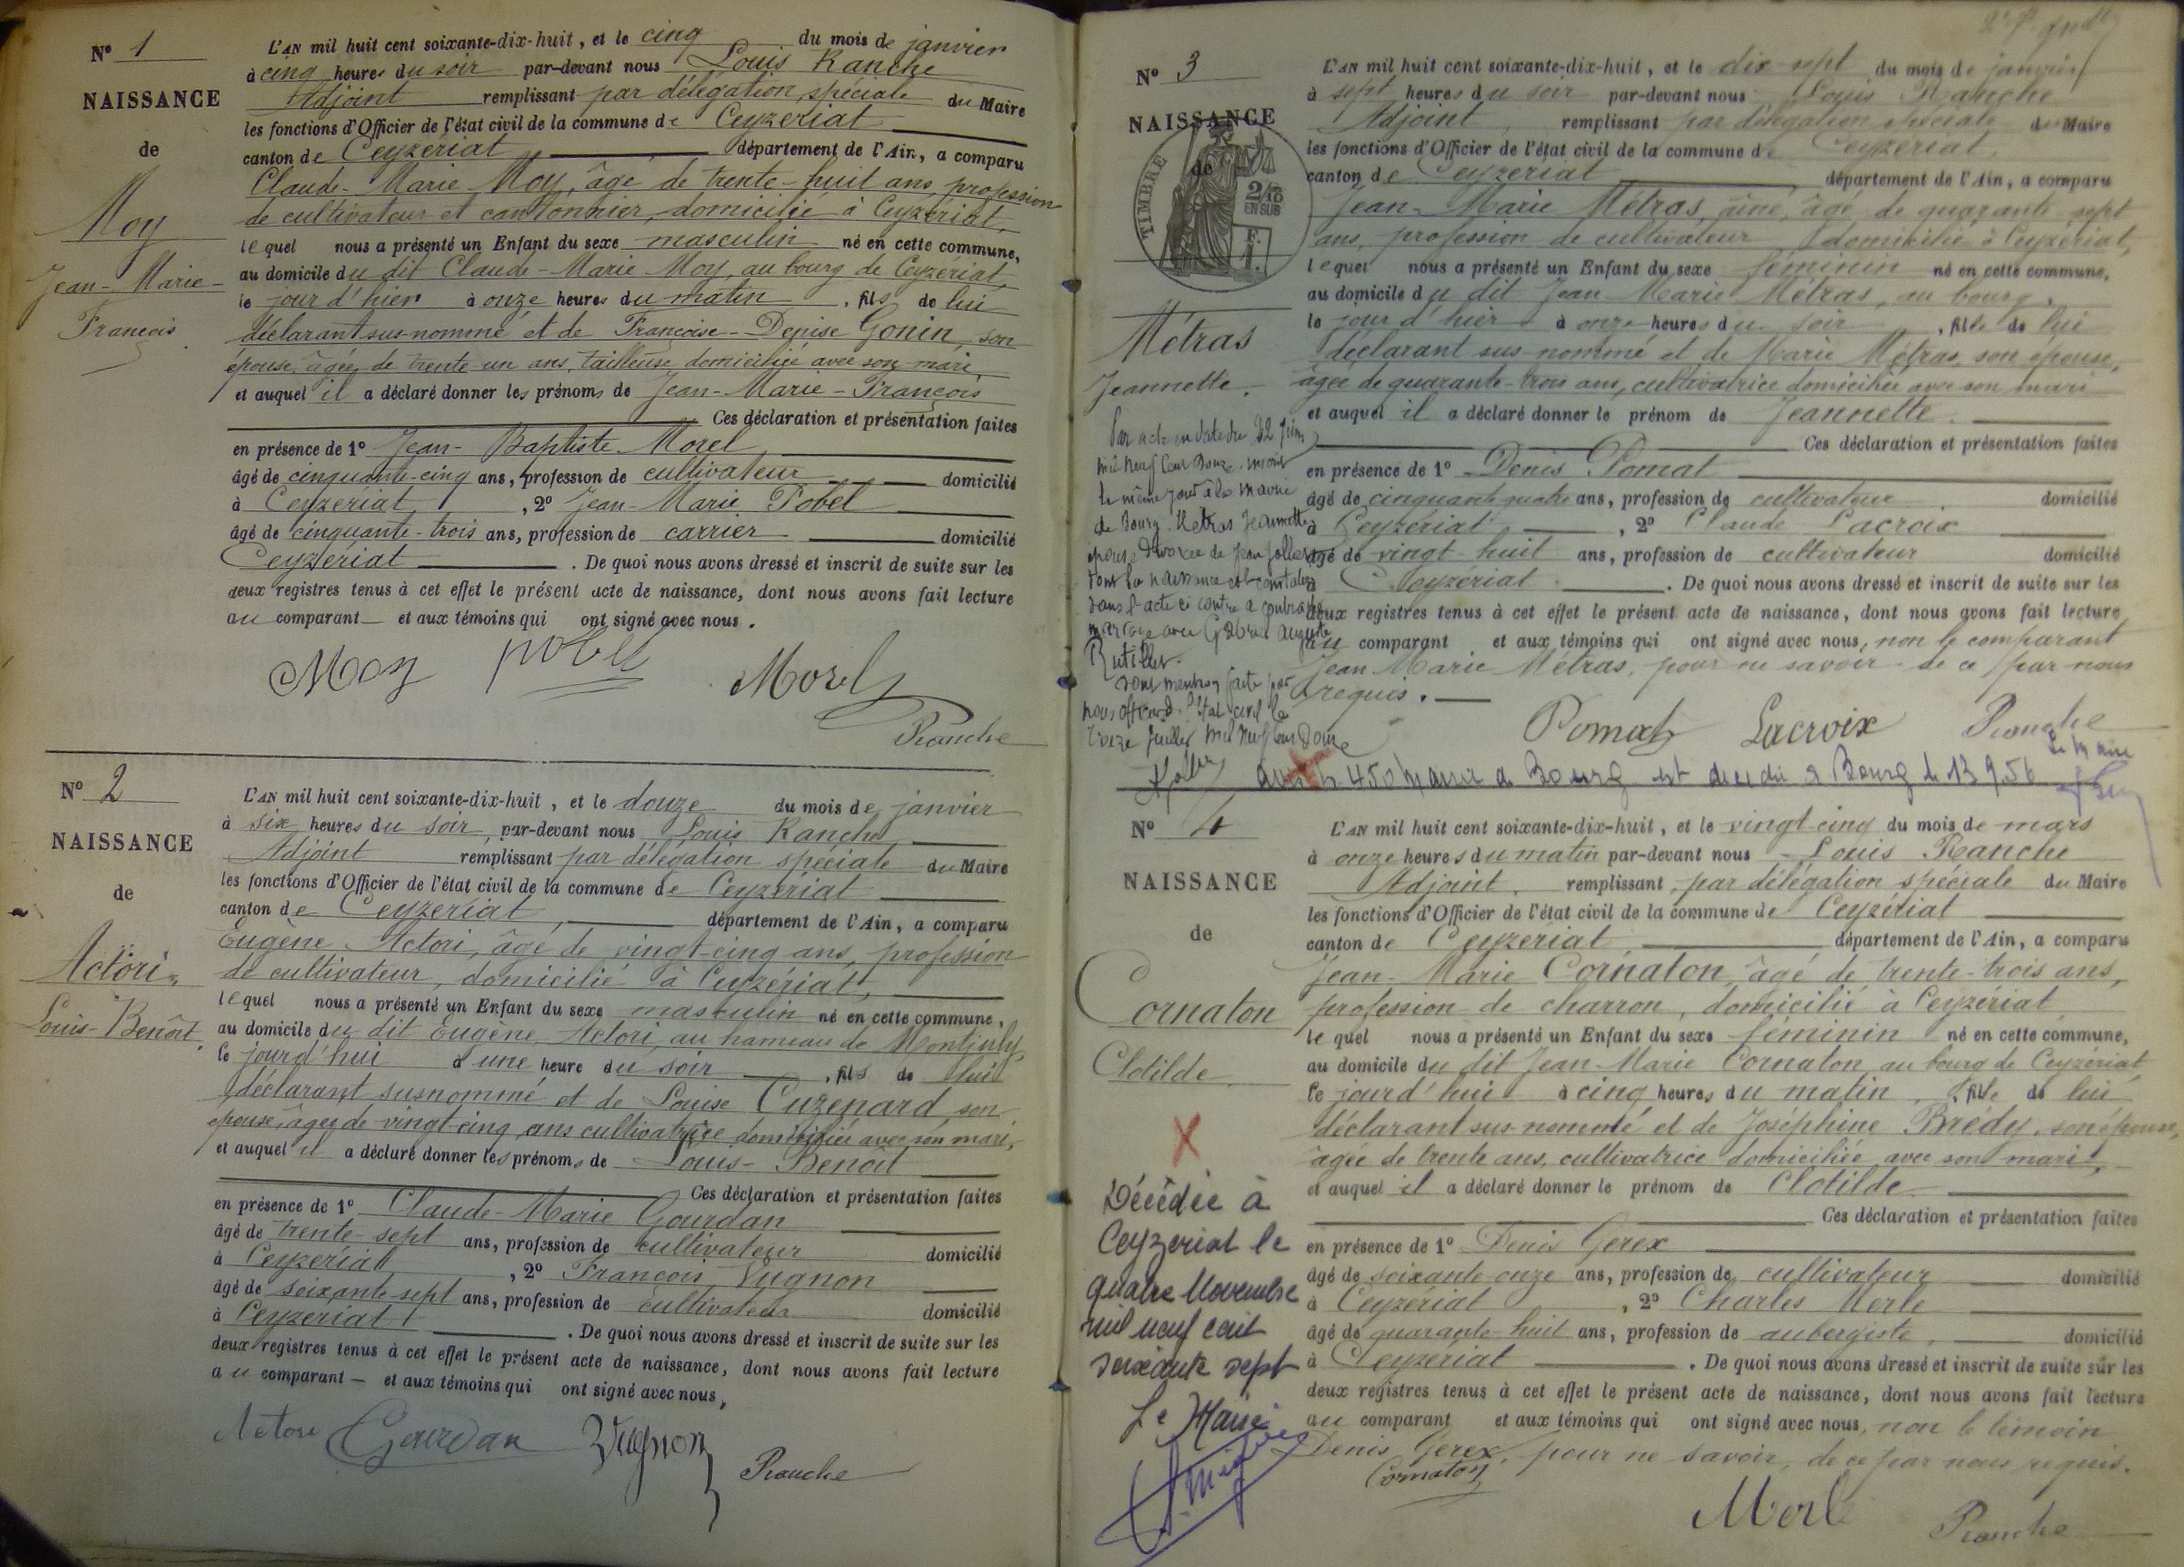 N° 1
NAISSANCE
de
Moy
Jean-Marie-
François
L'AN mil huit cent soixante-dix-huit, et le cinq du mois de janvier
à cinq heures du soir par-devant nous Louis Ranche
Adjoint remplissant par délégation spéciale du Maire
les fonctions d'Officier de l'état civil de la commune de Ceyzériat
canton de Ceyzériat département de l'Ain, a comparu
Claude-Marie Moy, âgé de trente-huit ans, profession
de cultivateur et cantonnier, domicilié à Ceyzériat,
lequel nous a présenté un Enfant du sexe masculin né en cette commune,
au domicile du dit Claude-Marie Moy, au bourg de Ceyzériat,
le jour d'hier à onze heures du matin, fils de lui
déclarant sus-nommé et de Françoise-Denise Gonin, son
épouse, âgée de trente un ans, tailleuse, domiciliée avec son mari,
et auquel il a déclaré donner les prénoms de Jean-Marie-François
Ces déclaration et présentation faites
en présence de 1° Jean-Baptiste Morel
âgé de cinquante-cinq ans, profession de cultivateur domicilié
à Ceyzériat, 2° Jean-Marie Pobel
âgé de cinquante-trois ans, profession de carrier domicilié
Ceyzériat. De quoi nous avons dressé et inscrit de suite sur les
deux registres tenus à cet effet le présent acte de naissance, dont nous avons fait lecture
au comparant et aux témoins qui ont signé avec nous.
Moy Pobel Morel
Ranche
N° 2
NAISSANCE
de
Actori
Louis-Benoît
L'AN mil huit cent soixante-dix-huit, et le douze du mois de janvier
à six heures du soir par-devant nous Louis Ranche
Adjoint remplissant par délégation spéciale du Maire
les fonctions d'Officier de l'état civil de la commune de Ceyzériat
canton de Ceyzériat, département de l'Ain, a comparu
Eugène Actori, âgé de vingt-cinq ans, profession
de cultivateur, domicilié à Ceyzériat,
lequel nous a présenté un Enfant du sexe masculin né en cette commune,
au domicile du dit Eugène Actori, au hameau de
le jourd'hui à une heure du soir, fils de lui
déclarant susnommé et de Louise Cuzenard, son
épouse, âgée de vingt-cinq ans cultivatrice domiciliée avec son mari,
et auquel il a déclaré donner les prénoms de Louis-Benoît
Ces déclaration et présentation faites
en présence de 1° Claude-Marie Gourdan
âgé de trente-sept ans, profession de cultivateur domicilié
à Ceyzériat, 2° François Vugnon
âgé de soixante-sept ans, profession de cultivateur domicilié
à Ceyzériat. De quoi nous avons dressé et inscrit de suite sur les
deux registres tenus à cet effet le présent acte de naissance, dont nous avons fait lecture
au comparant et aux témoins qui ont signé avec nous,
Actori Gourdan Vugnon
Ranche
N° 3
NAISSANCE
de
TIMBRE
2/10
EN SUS
Métras
Jeannette.
Par acte en date du 22 Juin
mil neuf cent douze, inscrit
le même jour à la mairie
de Bourg, Métras Jeannette
épouse divorcée de Jean
dont la naissance est constatée
dans l'acte ci contre a contracté
mariage avec Gabriel Auguste
dont mention faite par
nous officier d'État civil le
Juillet mil neuf cent douze
L'AN mil huit cent soixante-dix-huit, et le dix-sept du mois de janvier
à sept heures du soir par-devant nous Louis Ranche
Adjoint, remplissant par délégation spéciale du Maire
les fonctions d'Officier de l'état civil de la commune de Ceyzériat,
canton de Ceyzériat département de l'Ain, a comparu
Jean-Marie Métras, aîné, âgé de quarante-sept
ans, profession de cultivateur, domicilié à Ceyzériat,
lequel nous a présenté un Enfant du sexe féminin né en cette commune,
au domicile du dit Jean-Marie Métras, au bourg,
le jour d'hier à onze heures du soir, fille de lui
déclarant sus-nommé et de Marie Métras, son épouse,
âgée de quarante-trois ans, cultivatrice domiciliée avec son mari
et auquel il a déclaré donner le prénom de Jeannette.
Ces déclaration et présentation faites
en présence de 1° Denis Pomat
âgé de cinquante quatre ans, profession de cultivateur domicilié
à Ceyzériat, 2° Claude Lacroix
âgé de vingt-huit ans, profession de cultivateur domicilié
à Ceyzériat. De quoi nous avons dressé et inscrit de suite sur les
deux registres tenus à cet effet le présent acte de naissance, dont nous avons fait lecture
au comparant et aux témoins qui ont signé avec nous, non le comparant
Jean-Marie Métras, pour ne savoir de ce par nous
requis.
Pomat Lacroix Ranche
450 Mairie de Bourg est décédée à Bourg le 13 9.56
Le Maire
N° 4
NAISSANCE
de
Cornaton
Clotilde
Décédée à
Ceyzériat le
quatre Novembre
mil neuf cent
soixante sept
Le Maire
L'AN mil huit cent soixante-dix-huit, et le vingt-cinq du mois de mars
à onze heures du matin par-devant nous Louis Ranche
Adjoint, remplissant par délégation spéciale du Maire
les fonctions d'Officier de l'état civil de la commune de Ceyzériat
canton de Ceyzériat département de l'Ain, a comparu
Jean-Marie Cornaton, âgé de trente-trois ans,
profession de charron, domicilié à Ceyzériat
lequel nous a présenté un Enfant du sexe féminin né en cette commune,
au domicile du dit Jean-Marie Cornaton au bourg de Ceyzériat
le jourd'hui à cinq heures du matin, fille de lui
déclarant sus-nommé et de Joséphine Brédy, son épouse,
âgée de trente ans, cultivatrice domiciliée avec son mari,
et auquel il a déclaré donner le prénom de Clotilde
Ces déclaration et présentation faites
en présence de 1° Denis Gerex
âgé de soixante-onze ans, profession de cultivateur domicilié
à Ceyzériat, 2° Charles Merle
âgé de quarante-huit ans, profession de aubergiste, domicilié
à Ceyzériat. De quoi nous avons dressé et inscrit de suite sur les
deux registres tenus à cet effet le présent acte de naissance, dont nous avons fait lecture
au comparant et aux témoins qui ont signé avec nous, non le témoin
Denis Gerex, pour ne savoir, de ce par nous requis.
Cornaton
Merle Ranche